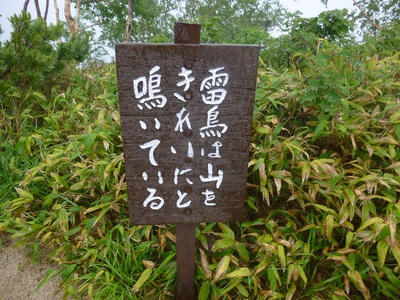 雷鳥は山を
きれいにと
鳴いている